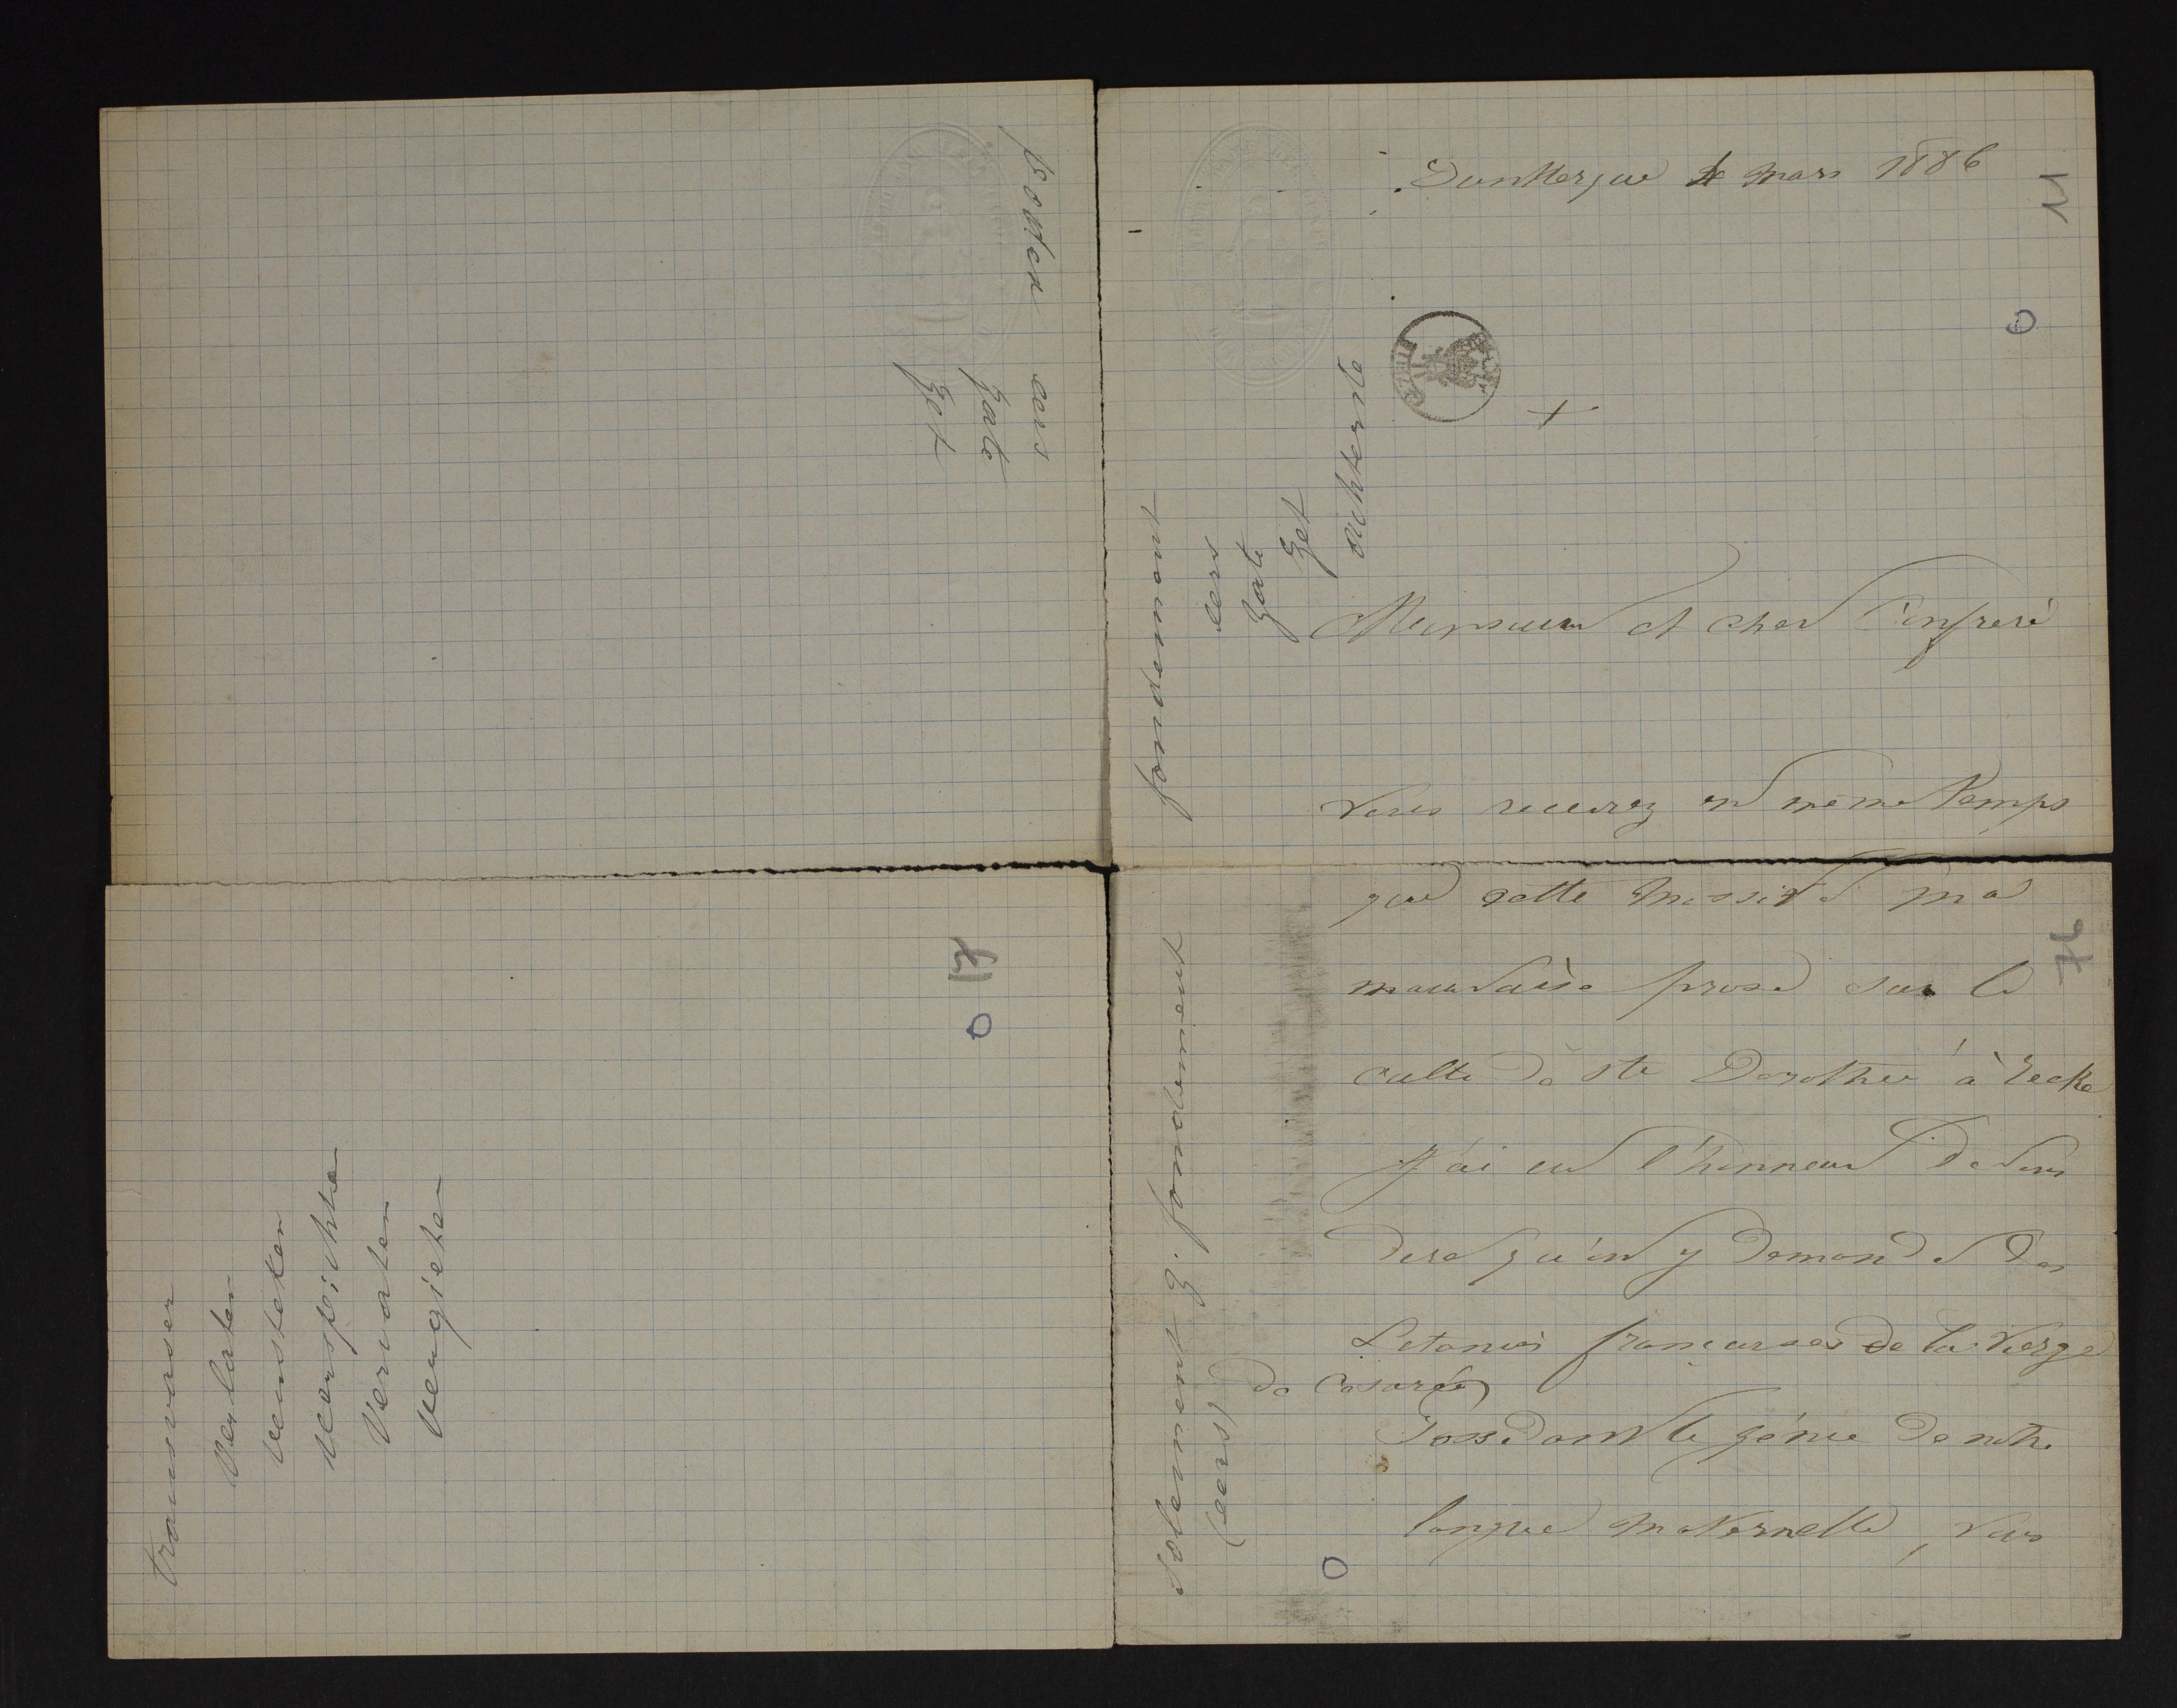 Dunkerque 4 mars 1886
11
0
+
Monsieur et cher Confrère
Vous recevrez en même temps
que cette missive ma
mauvaise prose sur le
culte de Ste Dorothée à
J'ai eu l'honneur de vous
dire qu'on y demande des
Litanies françaises de la Vierge
de Césarée
Possédant le génie de notre
langue maternelle, vous
76
0
fondamment
eers
gate
get
solemment g. fondamment
(eers)
eers
gate
get
17
0
transvaser
verlaten
vensteken
verspichten
vervaten
vergieten